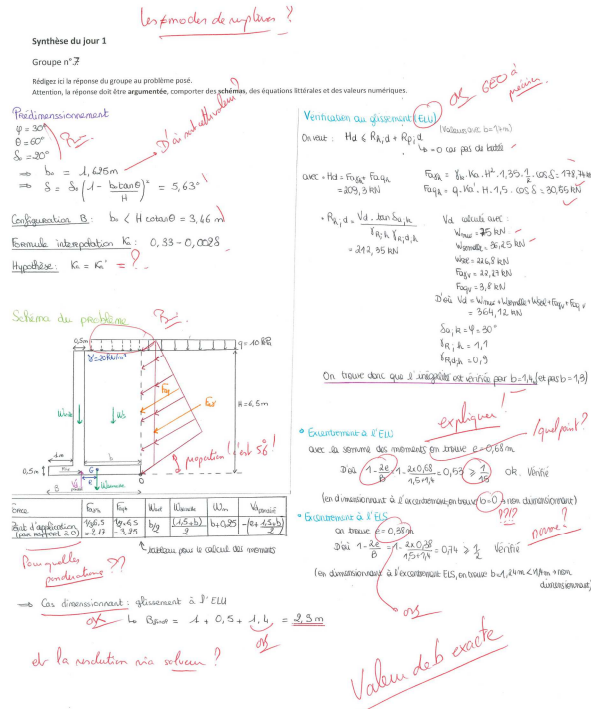 Les ≠ modes de ruptures ?
Synthèse du jour 1
Groupe n°7
Rédigez ici la réponse du groupe au problème posé.
Attention, la réponse doit être argumentée, comporter des schémas, des équations littérales et des valeurs numériques.
Prédimensionnement
φ = 30°
θ = 60°
δ₀ = 20°
D'où sort cette valeur ?
⇒ b₀ = 1,625m
⇒ δ = δ₀ (1 - b₀ tanθ / H)² = 5,63°
Configuration B : b₀ < H cotanθ = 3,46 m
Formule interpolation Ka : 0,33 - 0,002δ
Hypothèse : Ka = Ka' = ?
Schéma du problème
0,5m
q = 10 kPa
γ = 20kN/m³
H = 6,5m
Ws
b
0,5m
G
B
O
proportion ! c'est 5° !
Force
Point d'application
(par rapport à O)
1/3 6,5
= 2,17
1/2 × 6,5
= 3,25
b/2
(1,5+b)/2
b+0,25
↑ tableau pour le calcul des moments
Pourquelles pondérations ??
⇒ Cas dimensionnant : glissement à l'ELU
ok
= 1 + 0,5 + 1,4 = 2,9m
ok
et la résolution via solveur ?
Vérification au glissement (ELU)
ok GEO à préciser
(Valeurs avec b=1,7m)
On veut : Hd ≤ Rh,d + Rp,d
↳ = 0 car pas de butée
avec • Hd = Faγh + Faqh
= 209,3 kN
Faqh = q · Ka' · H · 1,5 · cos δ = 30,55 kN
• Rh,d = Vd · tan δa,k / γR;h γR;d,h
= 212,35 kN
Vd calculé avec :
Wmur = 75 kN
Wsemelle = 36,25 kN
Wsol = 226,8 kN
Faγv = 22,27 kN
Faqv = 3,8 kN
D'où Vd = Wmur + Wsemelle + Wsol + Faγv + Faqv
= 364,12 kN
δa,k = φ = 30°
γR;h = 1,1
γR;d,h = 0,9
On trouve donc que l'inégalité est vérifiée par b=1,4, (et pas b=1,3)
expliquer !
/ quel point ?
• Excentrement à l'ELU
avec la somme des moments on trouve e = 0,68m
D'où 1 - 2e/B = 1 - 2×0,68 / 1,5+1,4 = 0,53 ≥ 1/15 OK. Vérifié
(en dimensionnant à l'excentrement, on trouve b=0 → non dimensionnant)
?!??
norme ?
• Excentrement à l'ELS
on trouve e = 0,38m
D'où 1 - 2e/B = 1 - 2×0,38 / 1,5+1,4 = 0,74 ≥ 1/2 Vérifié
(en dimensionnant à l'excentrement ELS, on trouve b = 1,24m < 1,4m → non dimensionnant)
ok
Valeur de b exacte